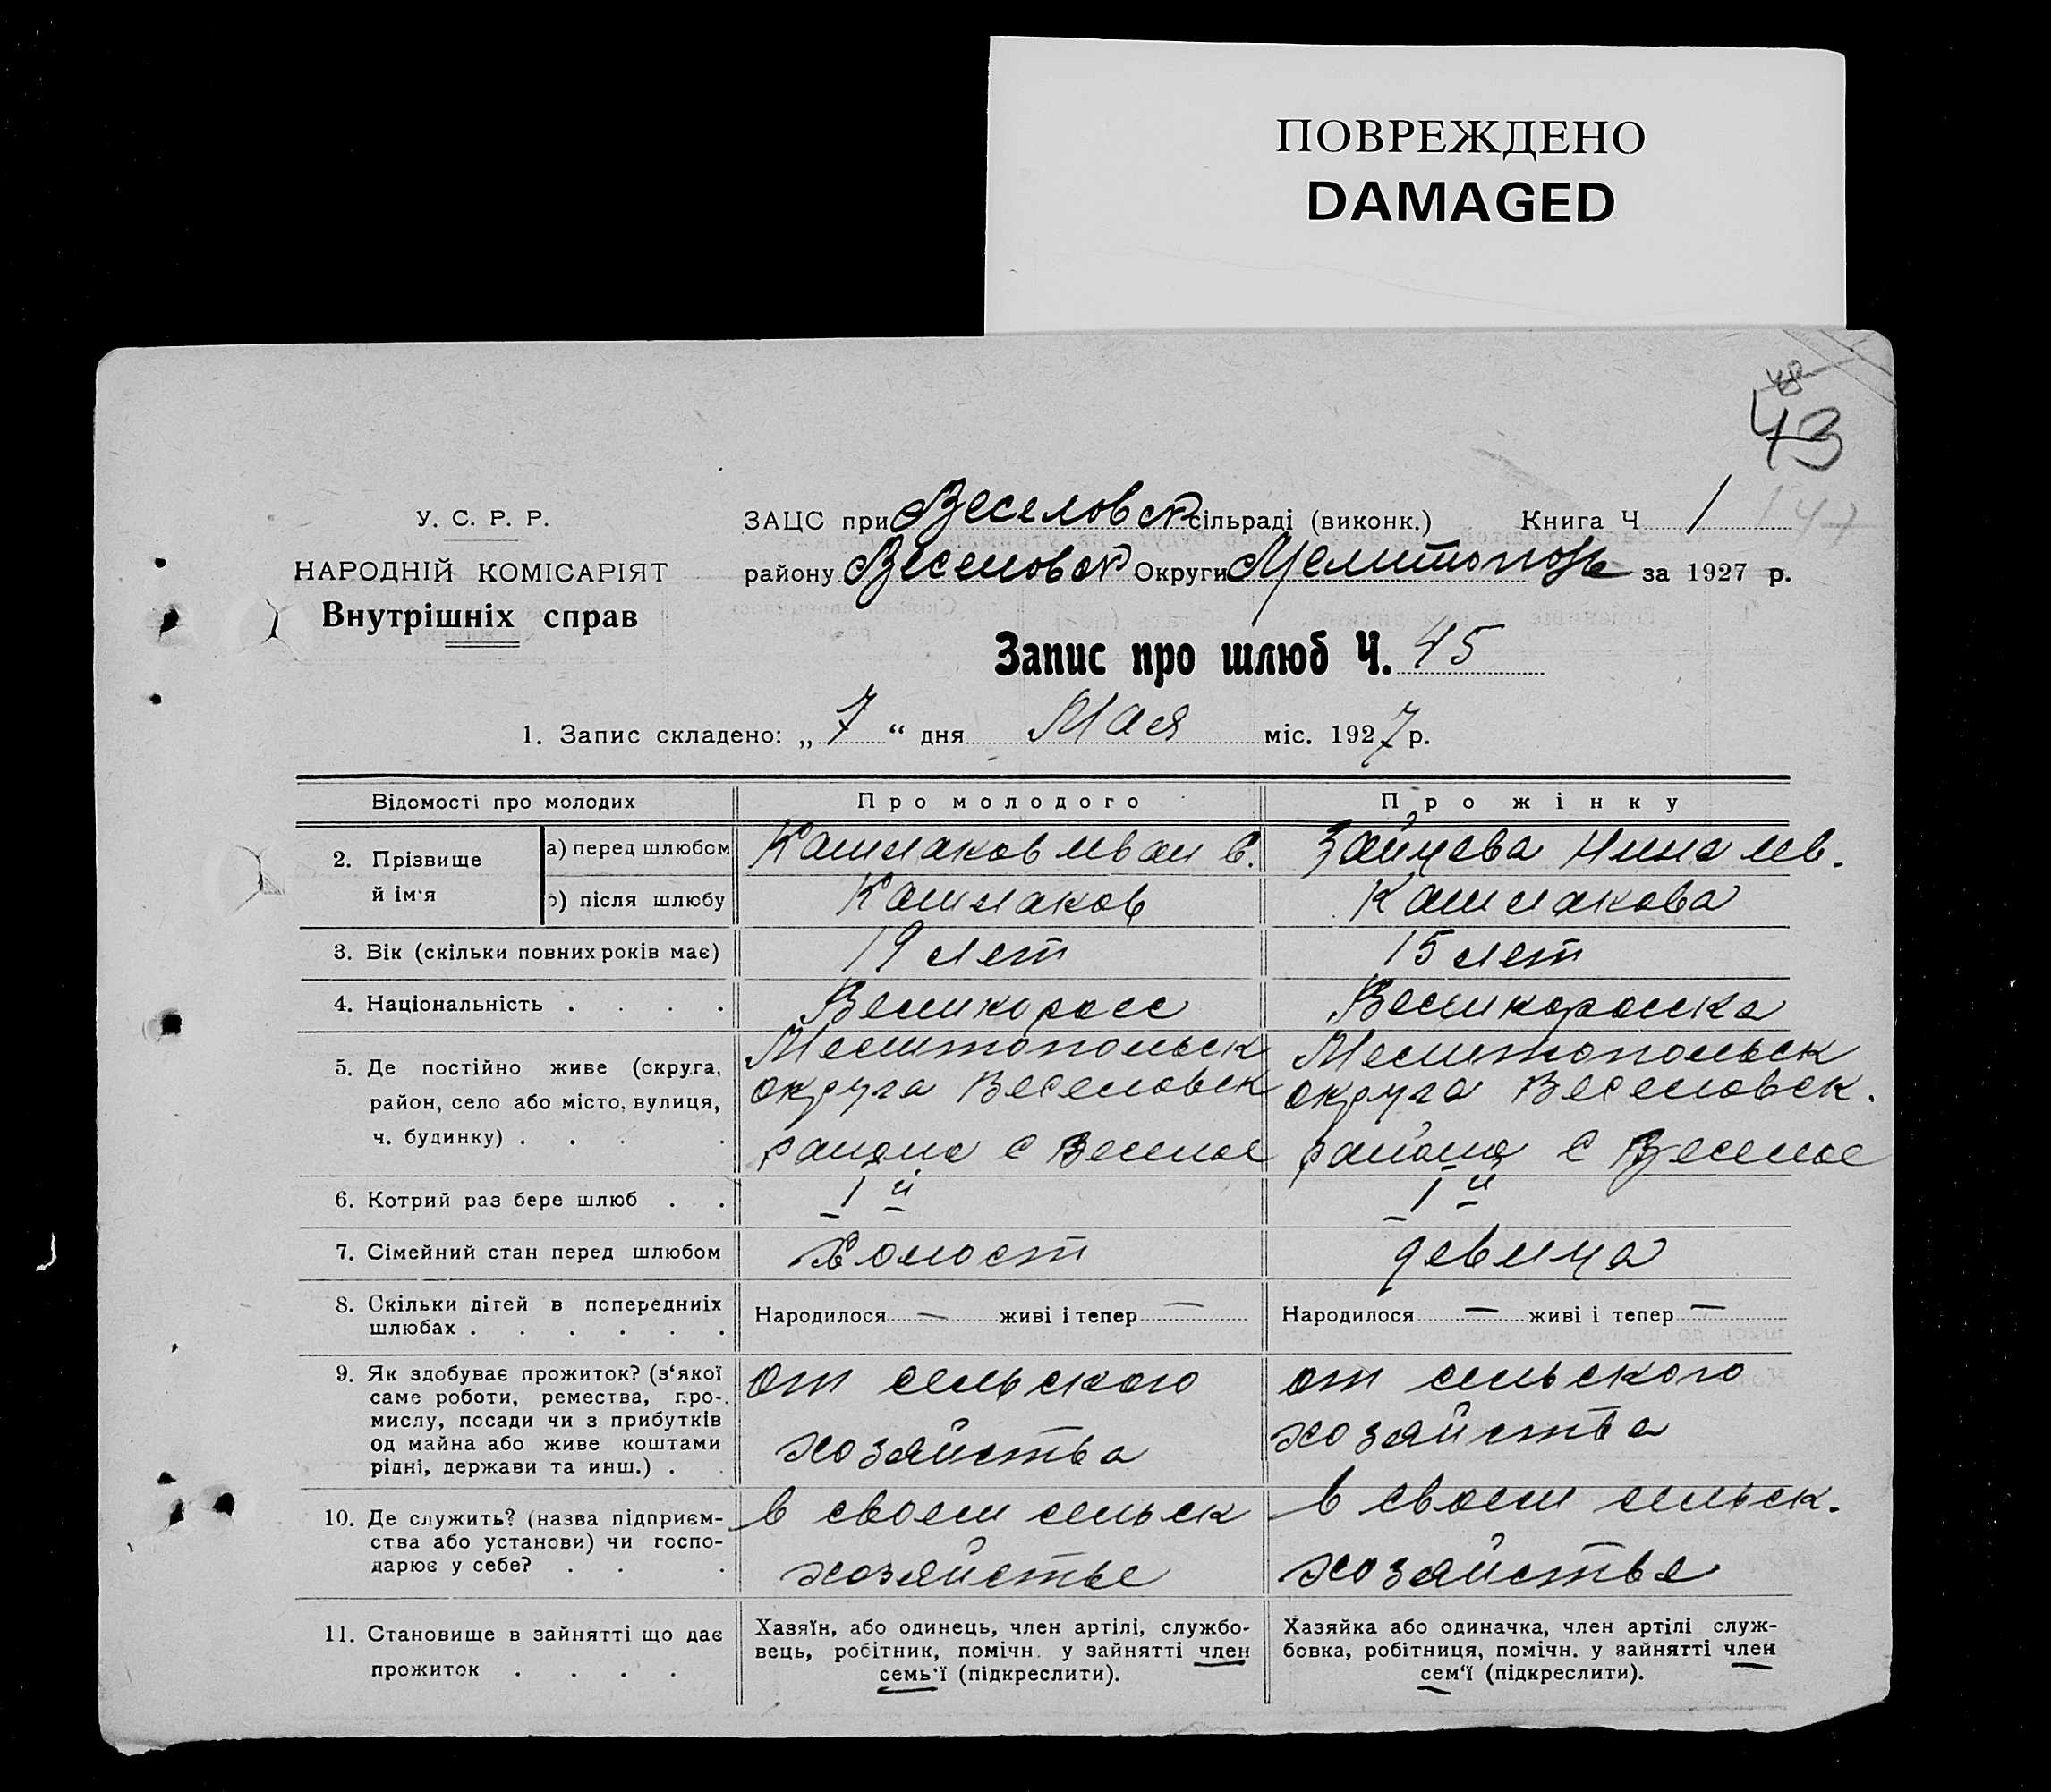 ПОВРЕЖДЕНО
DAMAGED
48
43
У. С. Р. Р.
НАРОДНІЙ КОМІСАРІЯТ
Внутрішніх справ
ЗАЦС при Веселовск сільраді (виконк.) Книга Ч 1 147
району Веселовск Округи Мелитополь за 1927 р.
Запис про шлюб Ч. 45
1. Запис складено: „ 7 “ дня Мая міс. 1927 р.
Відомості про молодих Про молодого Про жінку
2. Прізвище й ім'я а) перед шлюбом Кашлаков Иван С. Зайцева Нина Ив.
б) після шлюбу Кашлаков Кашлакова
3. Вік (скільки повних років має) 19 лет 15 лет
4. Національність . . . . Великоросс Великоросска
5. Де постійно живе (округа, район, село або місто, вулиця, ч. будинку) . . . .
Мелитопольск Мелитопольск
округа Веселовск округа Веселовск.
района с Веселое района с Веселое
6. Котрий раз бере шлюб . . I й I й
7. Сімейний стан перед шлюбом холост девица
8. Скільки дітей в попередниіх шлюбах . . . . . . Народилося — живі і тепер — Народилося — живі і тепер —
9. Як здобуває прожиток? (з‘якої саме роботи, ремества, про-мислу, посади чи з прибутків од майна або живе коштами рідні, держави та инш.) . .
от сельского от сельского
хозяйства хозяйства
10. Де служить? (назва підприєм-ства або установи) чи госпо-дарює у себе? . . .
в своем сельск в своем сельск.
хозяйстве хозяйстве
11. Становище в зайнятті що дає прожиток . . . .
Хазяїн, або одинець, член артілі, службо- Хазяйка або одиначка, член артілі служ-
вець, робітник, помічн. у зайнятті член бовка, робітниця, помічн. у зайнятті член
семь‘ї (підкреслити). сем‘ї (підкреслити).